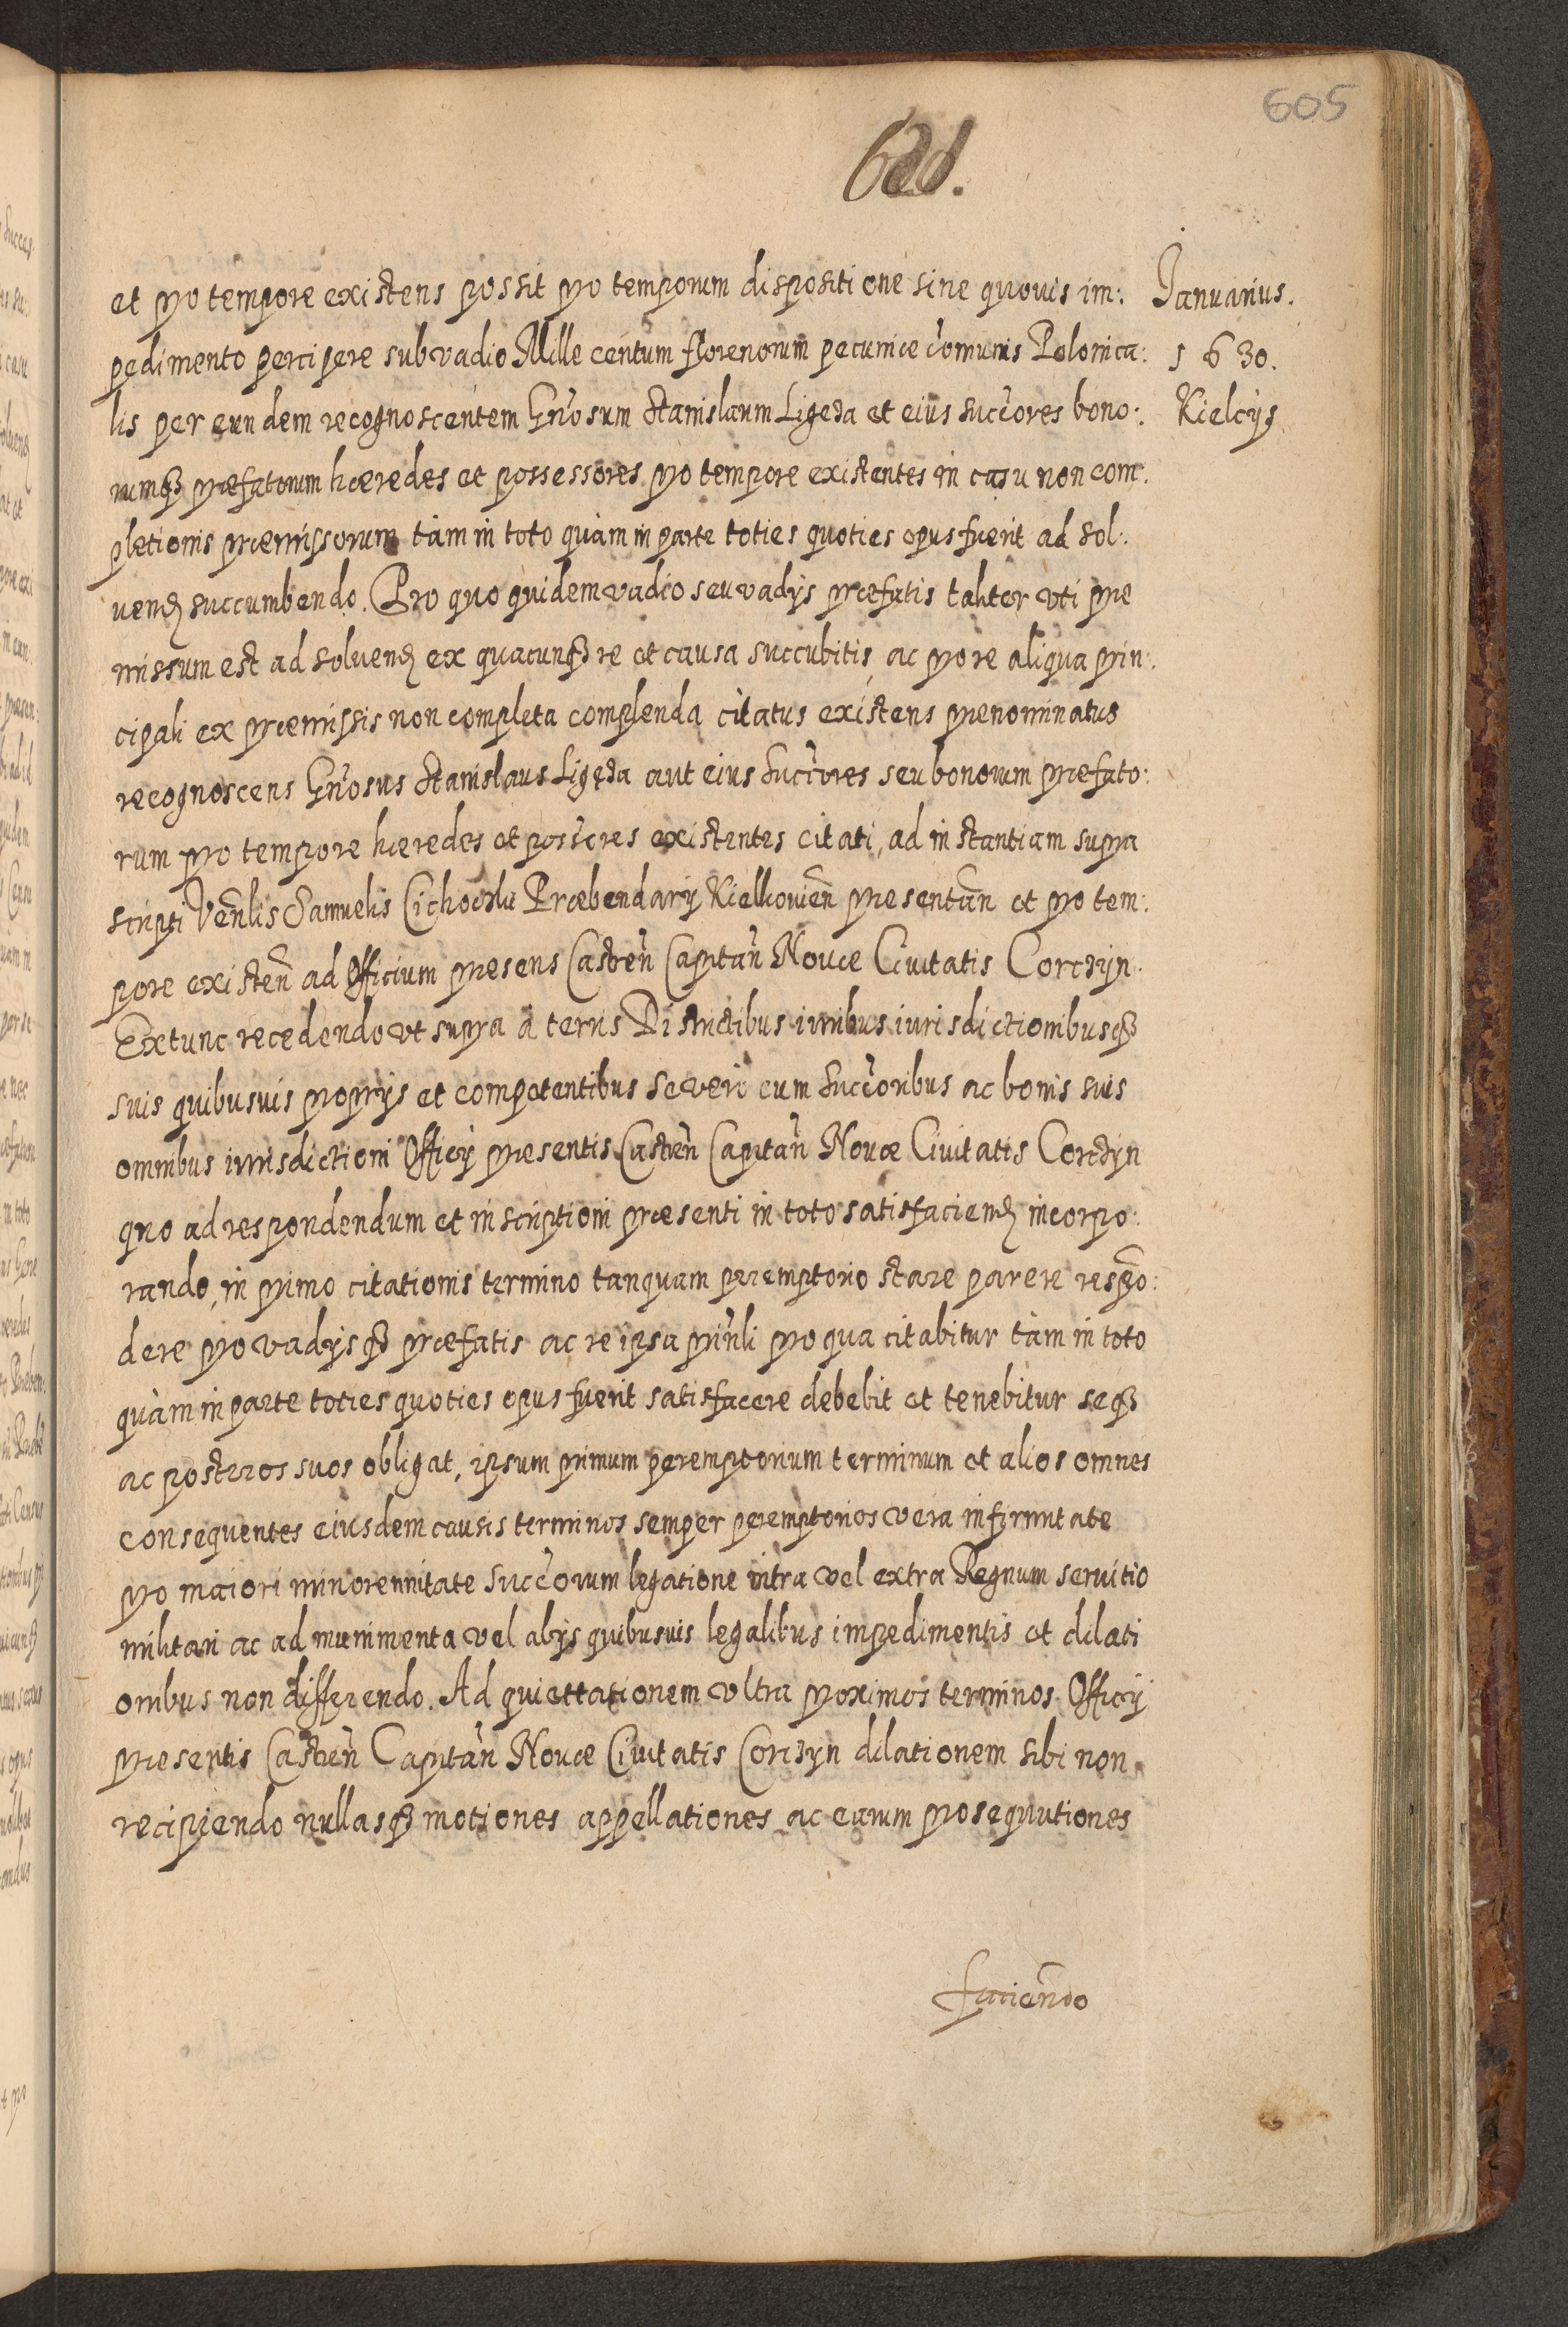 605
et pro tempore existens possit pro temporum dispositione sine quouis im:
pedimento percipere sub vadio Mille centum florenorum pecuniæ cõmunis Polonica:
lis per eundem recognoscentem Gñosum Stanislaum Ligeda et eius succores bono:
rumq3 præfatorum hæredes et possessores pro tempore existentes in casu non com:
pletionis præmissorum tàm in toto quàm in parte toties quoties opus fuerit ad sol:
uend succumbendo. Pro quo quidem vadio seu vadijs præfatis taliter vti pre
missum est ad soluend ex quacunq3 re et causa succubitis, ac pro re aliqua prin:
cipali ex præmissis non completa complenda citatus existens prenominatus
recognoscens Gñosus Stanislaus Ligęda aut eius succores seu bonorum præfato:
rum pro tempore hæredes et possores existentes citati, ad instantiam supra
scripti Veñlis Samuelis Cichocki Præbendarij Kielkouień presentañ et pro tem:
pore existeñ ad Officium presens Castreñ Capitañ Nouæ Ciuitatis Corczyn.
Extunc recedendo vt supra à terris Districtibus iuribus iurisdictionibusq3
suis quibusuis proprijs et competentibus se vero cum succoribus ac bonis suis
omnibus iurisdictioni Officij presentis Castreñ Capitañ Nouæ Ciuitatis Corczyn
quo ad respondendum et inscriptioni præsenti in toto satisfaciend incorpo:
rando, in primo citationis termino tanquam peremptorio stare parere respõ:
dere pro vadijsq3 præfatis ac re ipsa prinli pro qua citabitur tàm in toto
quàm in parte toties quoties opus fuerit satisfacere debebit et tenebitur seq3
ac posteros suos obligat, ipsum primum peremptorium terminum et alios omnes
consequentes eiusdem causis terminos semper peremptorios vera infirmitate
pro maiori minorennitate succorum legatione intra vel extra Regnum seruitio
militari ac ad munimenta vel alijs quibusuis legalibus impedimentis et dilati
onibus non differendo. Ad quiettationem vltra proximos terminos Officij
presentis Castreñ Capitañ Nouæ Ciuitatis Corczyn dilationem sibi non
recipiendo nullasq3 motiones appellationes ac earum prosequutiones
faciendo
Januarius.
1630.
Kielcijs